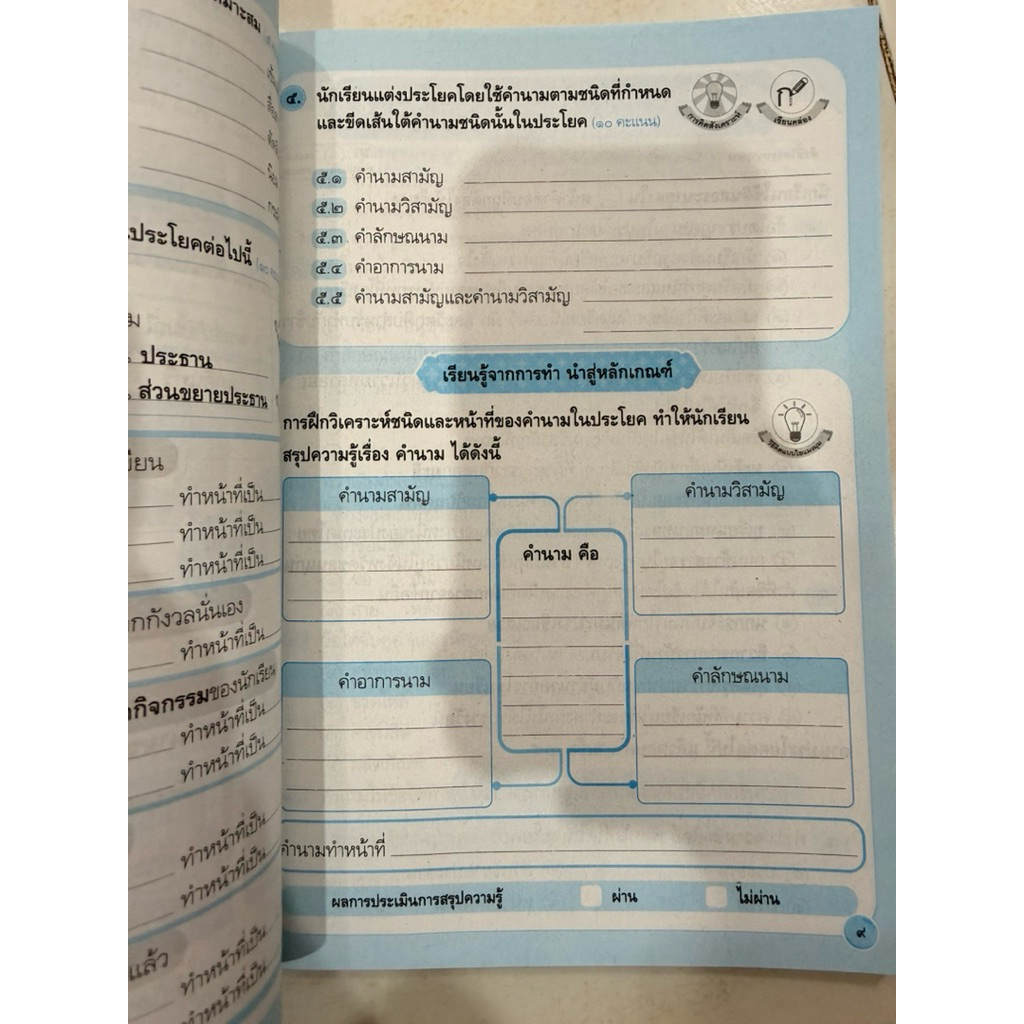 ประโยคต่อไปนี้
ประธาน
ส่วนขยายประธาน
ทำหน้าที่เป็น
ทำหน้าที่เป็น
ทำหน้าที่เป็น
กกังวลนั่นเอง
ทำหน้าที่เป็น
กิจกรรมของนักเรียน
ทำหน้าที่เป็น
ทำหน้าที่เป็น
ทำหน้าที่เป็น
ทำหน้าที่เป็น
แล้ว
ทำหน้าที่เป็น
ทำหน้าที่เป็น
๕. นักเรียนแต่งประโยคโดยใช้คำนามตามชนิดที่กำหนด
และขีดเส้นใต้คำนามชนิดนั้นในประโยค (๑๐ คะแนน)
การคิดสังเคราะห์
ก
เรียนคล่อง
๕.๑ คำนามสามัญ
๕.๒ คำนามวิสามัญ
๕.๓ คำลักษณนาม
๕.๔ คำอาการนาม
๕.๕ คำนามสามัญและคำนามวิสามัญ
เรียนรู้จากการทำ นำสู่หลักเกณฑ์
การฝึกวิเคราะห์ชนิดและหน้าที่ของคำนามในประโยค ทำให้นักเรียน
สรุปความรู้เรื่อง คำนาม ได้ดังนี้
คำนามสามัญ
คำนามวิสามัญ
คำนาม คือ
คำอาการนาม
คำลักษณนาม
คำนามทำหน้าที่
ผลการประเมินการสรุปความรู้
ผ่าน
ไม่ผ่าน
๙